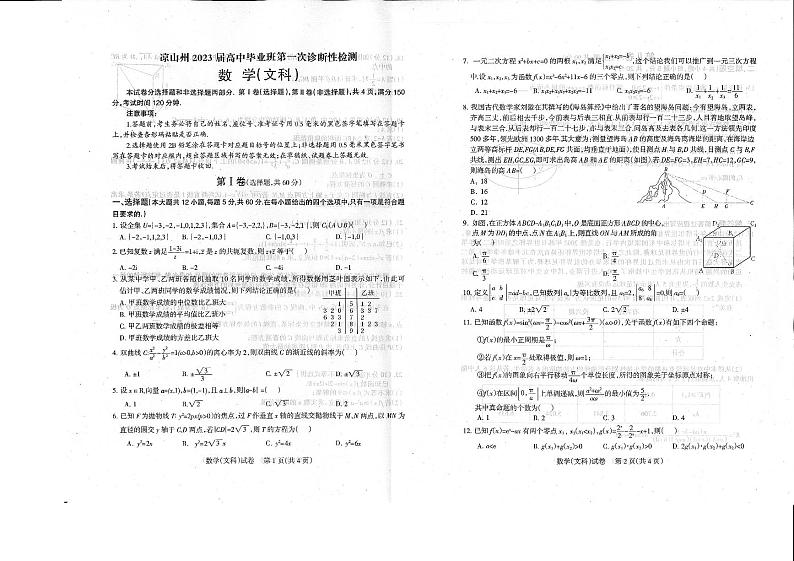 凉山州 2023 届高中毕业班第一次诊断性检测
数 学(文科)
本试卷分选择题和非选择题两部分. 第Ⅰ卷(选择题), 第Ⅱ卷(非选择题), 共 4 页, 满分 150
分, 考试时间 120 分钟.
注意事项:
1.答题前, 考生务必将自己的姓名、座位号、准考证号用 0.5 毫米的黑色签字笔填写在答题卡
上, 并检查条形码粘贴是否正确.
2.选择题使用 2B 铅笔涂在答题卡对应题目标号的位置上; 非选择题用 0.5 毫米黑色签字笔书
写在答题卡的对应框内, 超出答题区域书写的答案无效; 在草稿纸、试题卷上答题无效.
3.考试结束后, 将答题卡收回.
第Ⅰ卷(选择题, 共 60 分)
一、选择题(本大题共 12 小题, 每题 5 分, 共 60 分. 在每小题给出的四个选项中, 只有一项是符合题
目要求的.)
1. 设全集 U={-3,-2,-1,0,1,2,3}, 集合 A={-3,-2,2,}, B={-3,-2,1}, 则 C∪(A∪B)=
A. {-2,-1,1,2,3} B. {-2,-1,0,3} C. {-1,0,3} D. {-1,0}
2. 已知复数 z 满足 (1-3i)/z=1+i, z̄ 是 z 的共轭复数, 则 z+z̄ 等于( )
A. -2i B. -2 C. -4i D. -1
3. 从某中学甲、乙两班各随机抽取 10 名同学的数学成绩, 所得数据用茎叶图表示如下. 由此可
估计甲、乙两班同学的数学成绩情况, 则下列结论正确的是( )
甲班 乙班
A. 甲班数学成绩的中位数比乙班大
B. 甲班数学成绩的平均值比乙班小
C. 甲乙两班数学成绩的极差相等
D. 甲班数学成绩的方差比乙班大
4. 双曲线 C: x²/a²-y²/b²=1(a>0,b>0)的离心率为 2, 则双曲线 C 的渐近线的斜率为( )
A. ±1 B. ±√3/3 C. ±√2 D. ±√3
5. 设 x∈R, 向量 a=(x,1), b=(1,-1), 且 a⊥b, 则|a-b|=( )
A. 1 B. √2 C. √3 D. 2
6. 已知 F 为抛物线 T: y²=2px(p>0)的焦点, 过 F 作垂直 x 轴的直线交抛物线于 M、N 两点, 以 MN 为
直径的圆交 y 轴于 C,D 两点, 若|CD|=2√3, 则 T 的方程为( )
A. y²=2x B. y²=2√3x C. y²=4x D. y²=6x
数学(文科)试卷 第 1 页(共 4 页)
7. 一元二次方程 x²+bx+c=0 的两根 x₁,x₂ 满足 {x₁+x₂=-b, 这个结论我们可以推广到一元三次方程
中. 设 x₁,x₂,x₃ 为函数 f(x)=x³-6x²+11x-6 的三个零点, 则下列结论正确的是( )
A. x₁+x₂+x₃=-6 B. x₁x₂+x₂x₃+x₁x₃=-11 C. x₁x₂x₃=-6 D. 1/x₁+1/x₂+1/x₃=11/6
8. 我国古代数学家刘徽在其撰写的《海岛算经》中给出了著名的望海岛问题: 今有望海岛, 立两表,
齐高三丈, 前后相去千步, 令前表与后表三相直. 从前表却行一百二十三步, 人目着地取望岛峰,
与表末三合. 从后表却行一百二十七步, 亦与表末三合. 问岛高及去表各几何. 这一方法领先印度
500 多年, 领先欧洲 1300 多年. 其大意为: 测量望海岛 AB 的高度及海岛离海岸的距离, 在海岸边
则海岛的高 AB=( )
A. 18
B. 16
C. 12
D. 21
9. 如图, 在正方体 ABCD-A₁B₁C₁D₁ 中, O 是底面正方形 ABCD 的中心,
点 M 为 DD₁ 的中点, 点 N 在 A₁B₁ 上, 则直线 ON 与 AM 所成的角
为( )
A. π/6 B. π/4
C. π/3 D. π/2
10. 定义 |a b; c d|=ad-bc, 已知数列{aₙ}为等比数列, 且 a₃=2, |a₆ 8; 8 a₈|=0, 则 a₇=( )
A. 4 B. ±2√2 C. 2√2 D. ±4
①f(x)的最小正周期是 π/ω;
②若 f(x)在 x=π/2 处取得极值, 则 ω=1;
③把 f(x)的图象向右平行移动 π/4ω 个单位长度, 所得的图象关于坐标原点对称;
其中真命题的个数为( )
A. 1 B. 2 C. 3 D. 4
A. a<e B. g(x₁)+g(x₂)>0 C. g(x₁)·g(x₂)<0 D. 2g(x₁)·g(x₂)+g(x₂)<0
数学(文科)试卷 第 2 页(共 4 页)